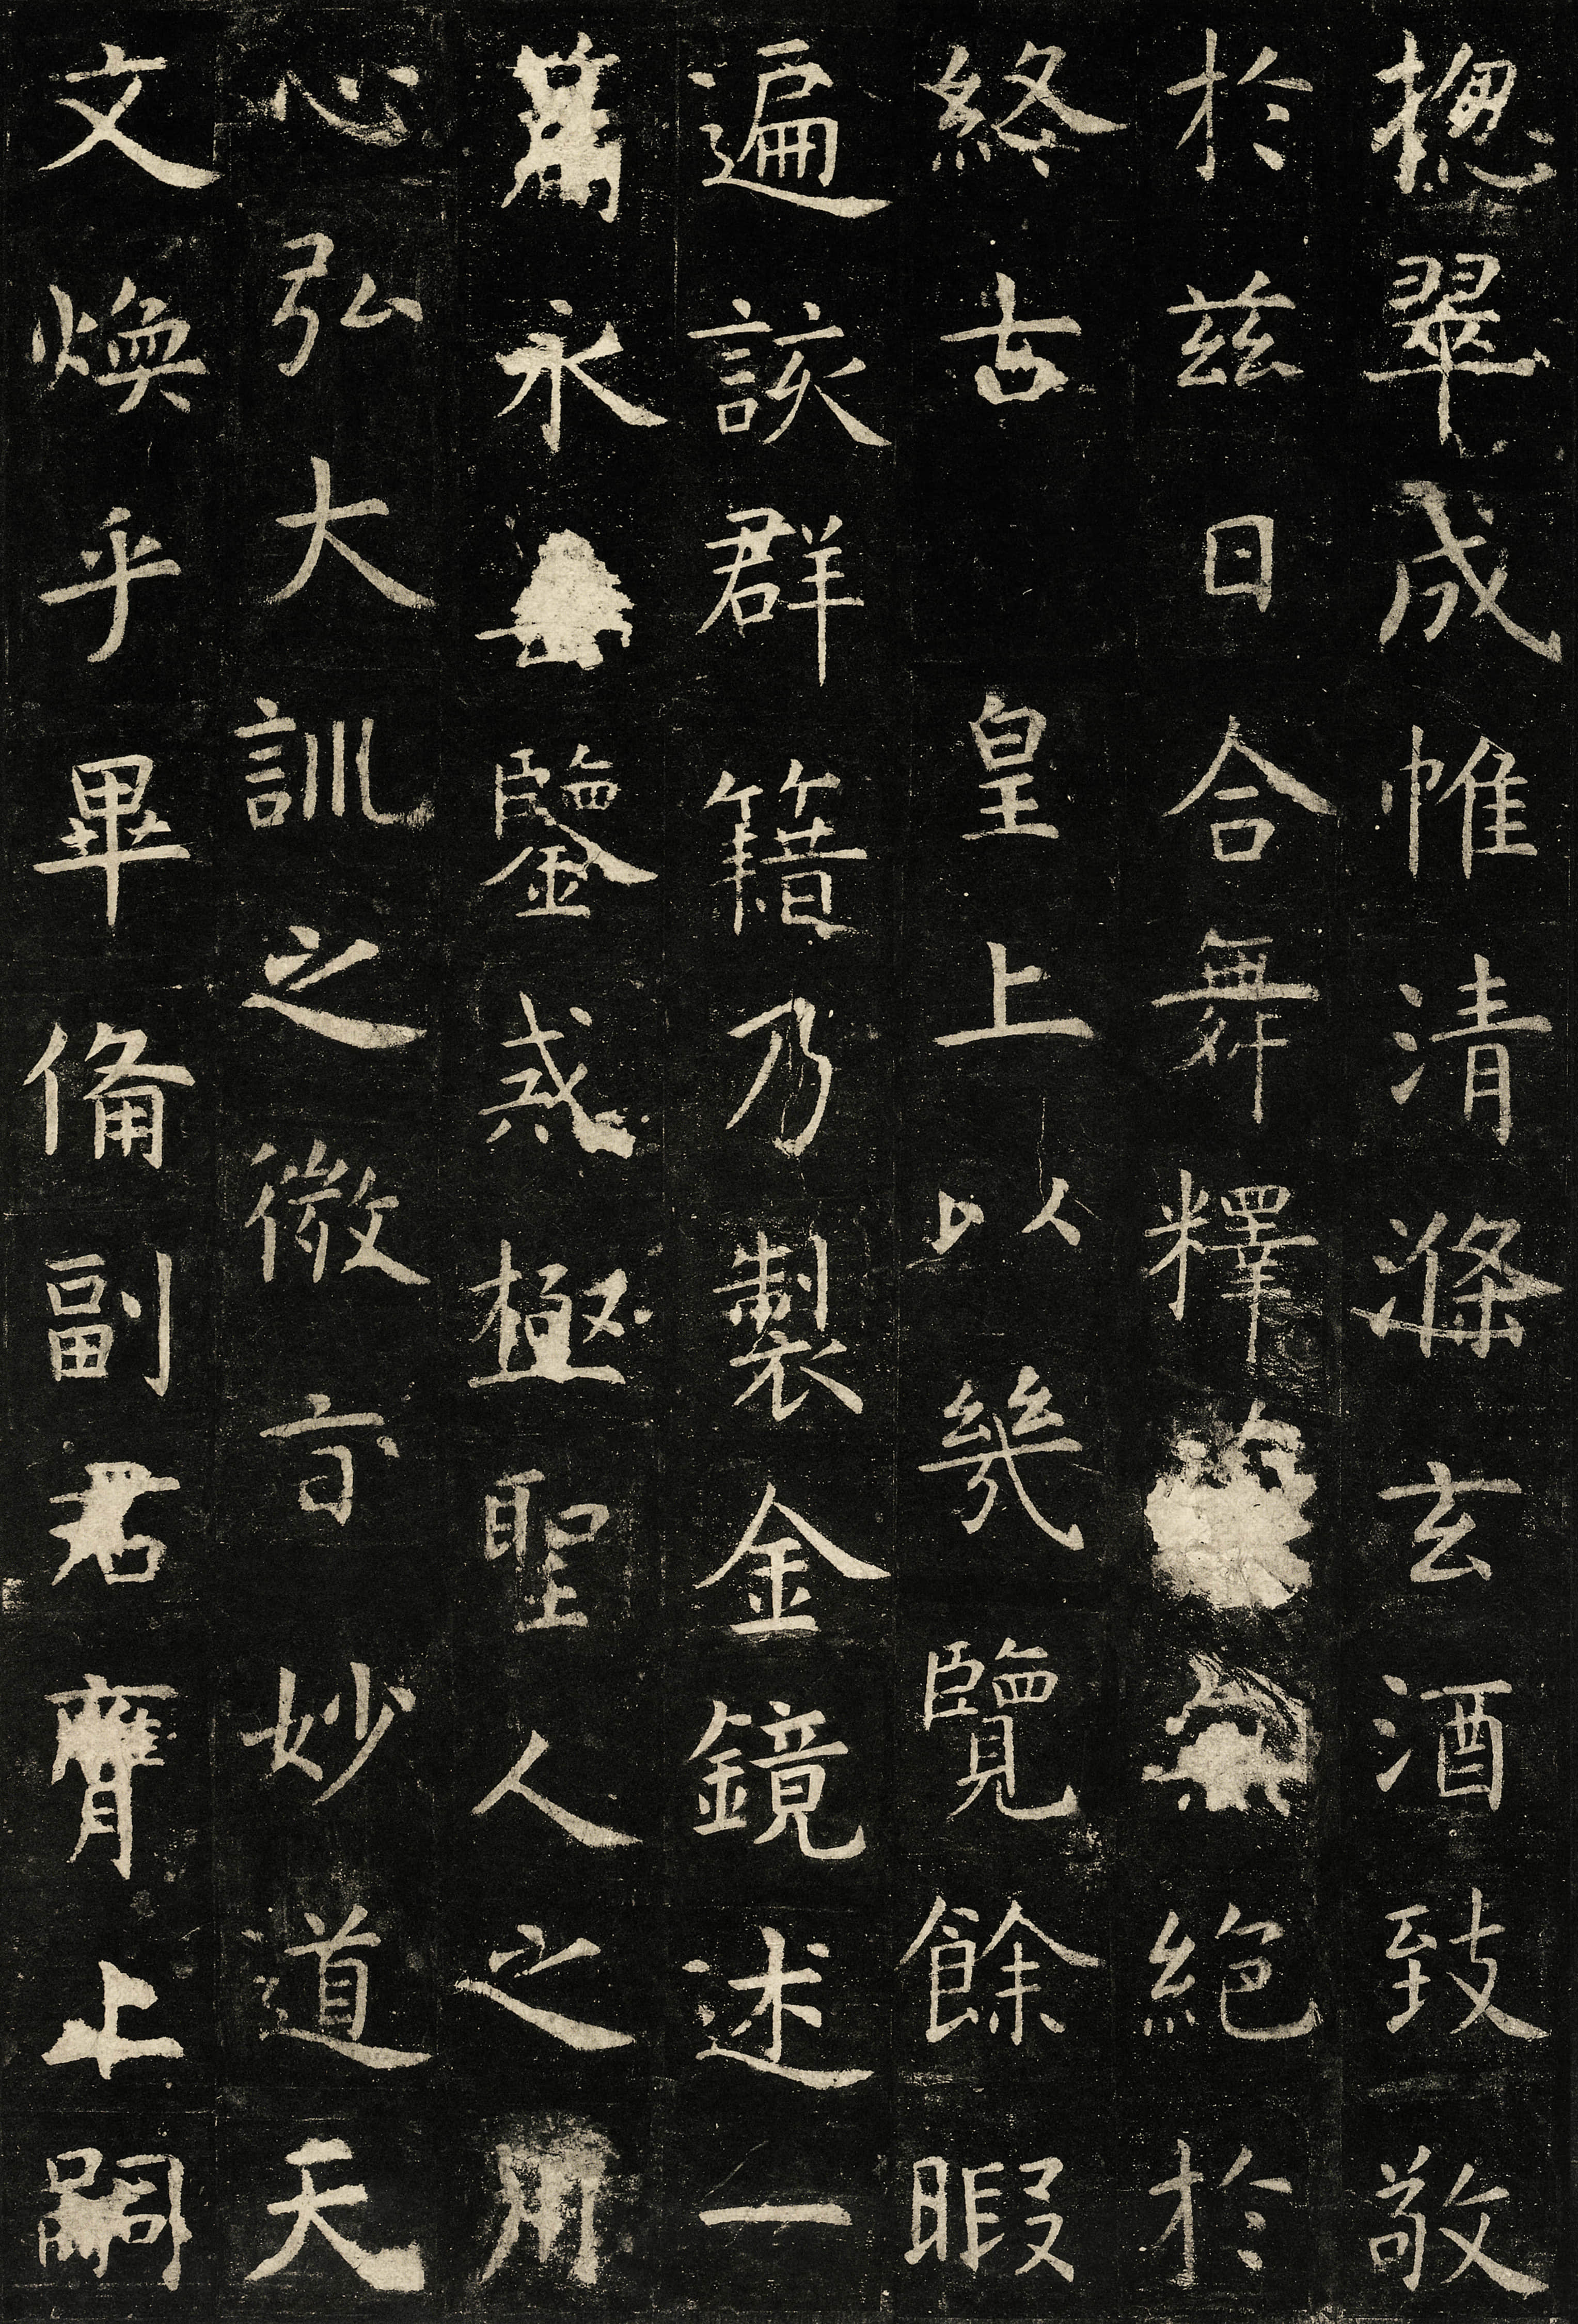 揔翠成帷清滌玄酒致敬
於兹日合舞釋絕於
終古皇上以幾覽餘暇
遍該群籍乃製金鏡述一
永鑒戒極聖人之用
心弘大訓之微旨妙道天
文煥乎畢備副君膺上嗣